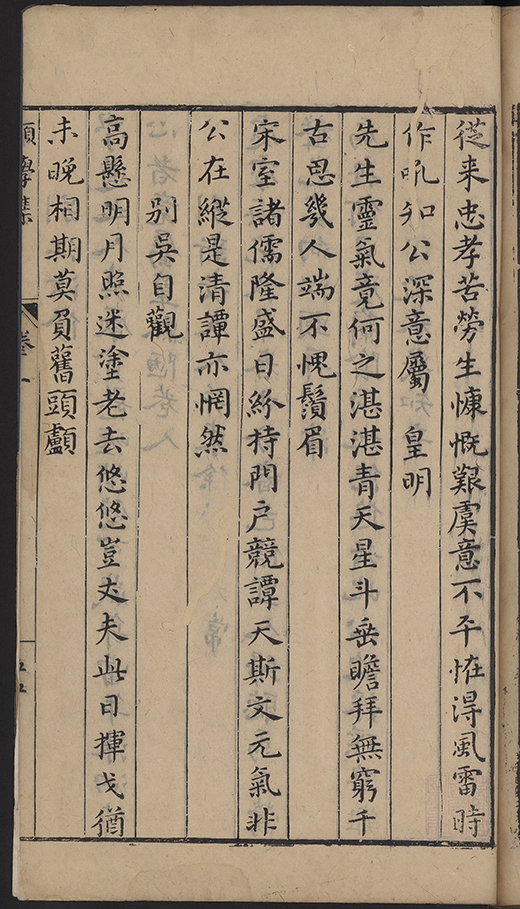 從来忠孝苦勞生慷慨艱虞意不平恠淂風雷時
作吼知公深意屬 皇明
先生靈氣竟何之湛湛青天星斗垂瞻拜無窮千
古思幾人端不愧鬚眉
宋室諸儒隆盛日紛持門户競譚天斯文元氣非
公在縱是清譚亦惘然
別吳自觀
高懸明月照迷塗老去悠悠豈丈夫此日揮戈猶
未晚相期莫負舊頭顱
學集
卷一
五十五